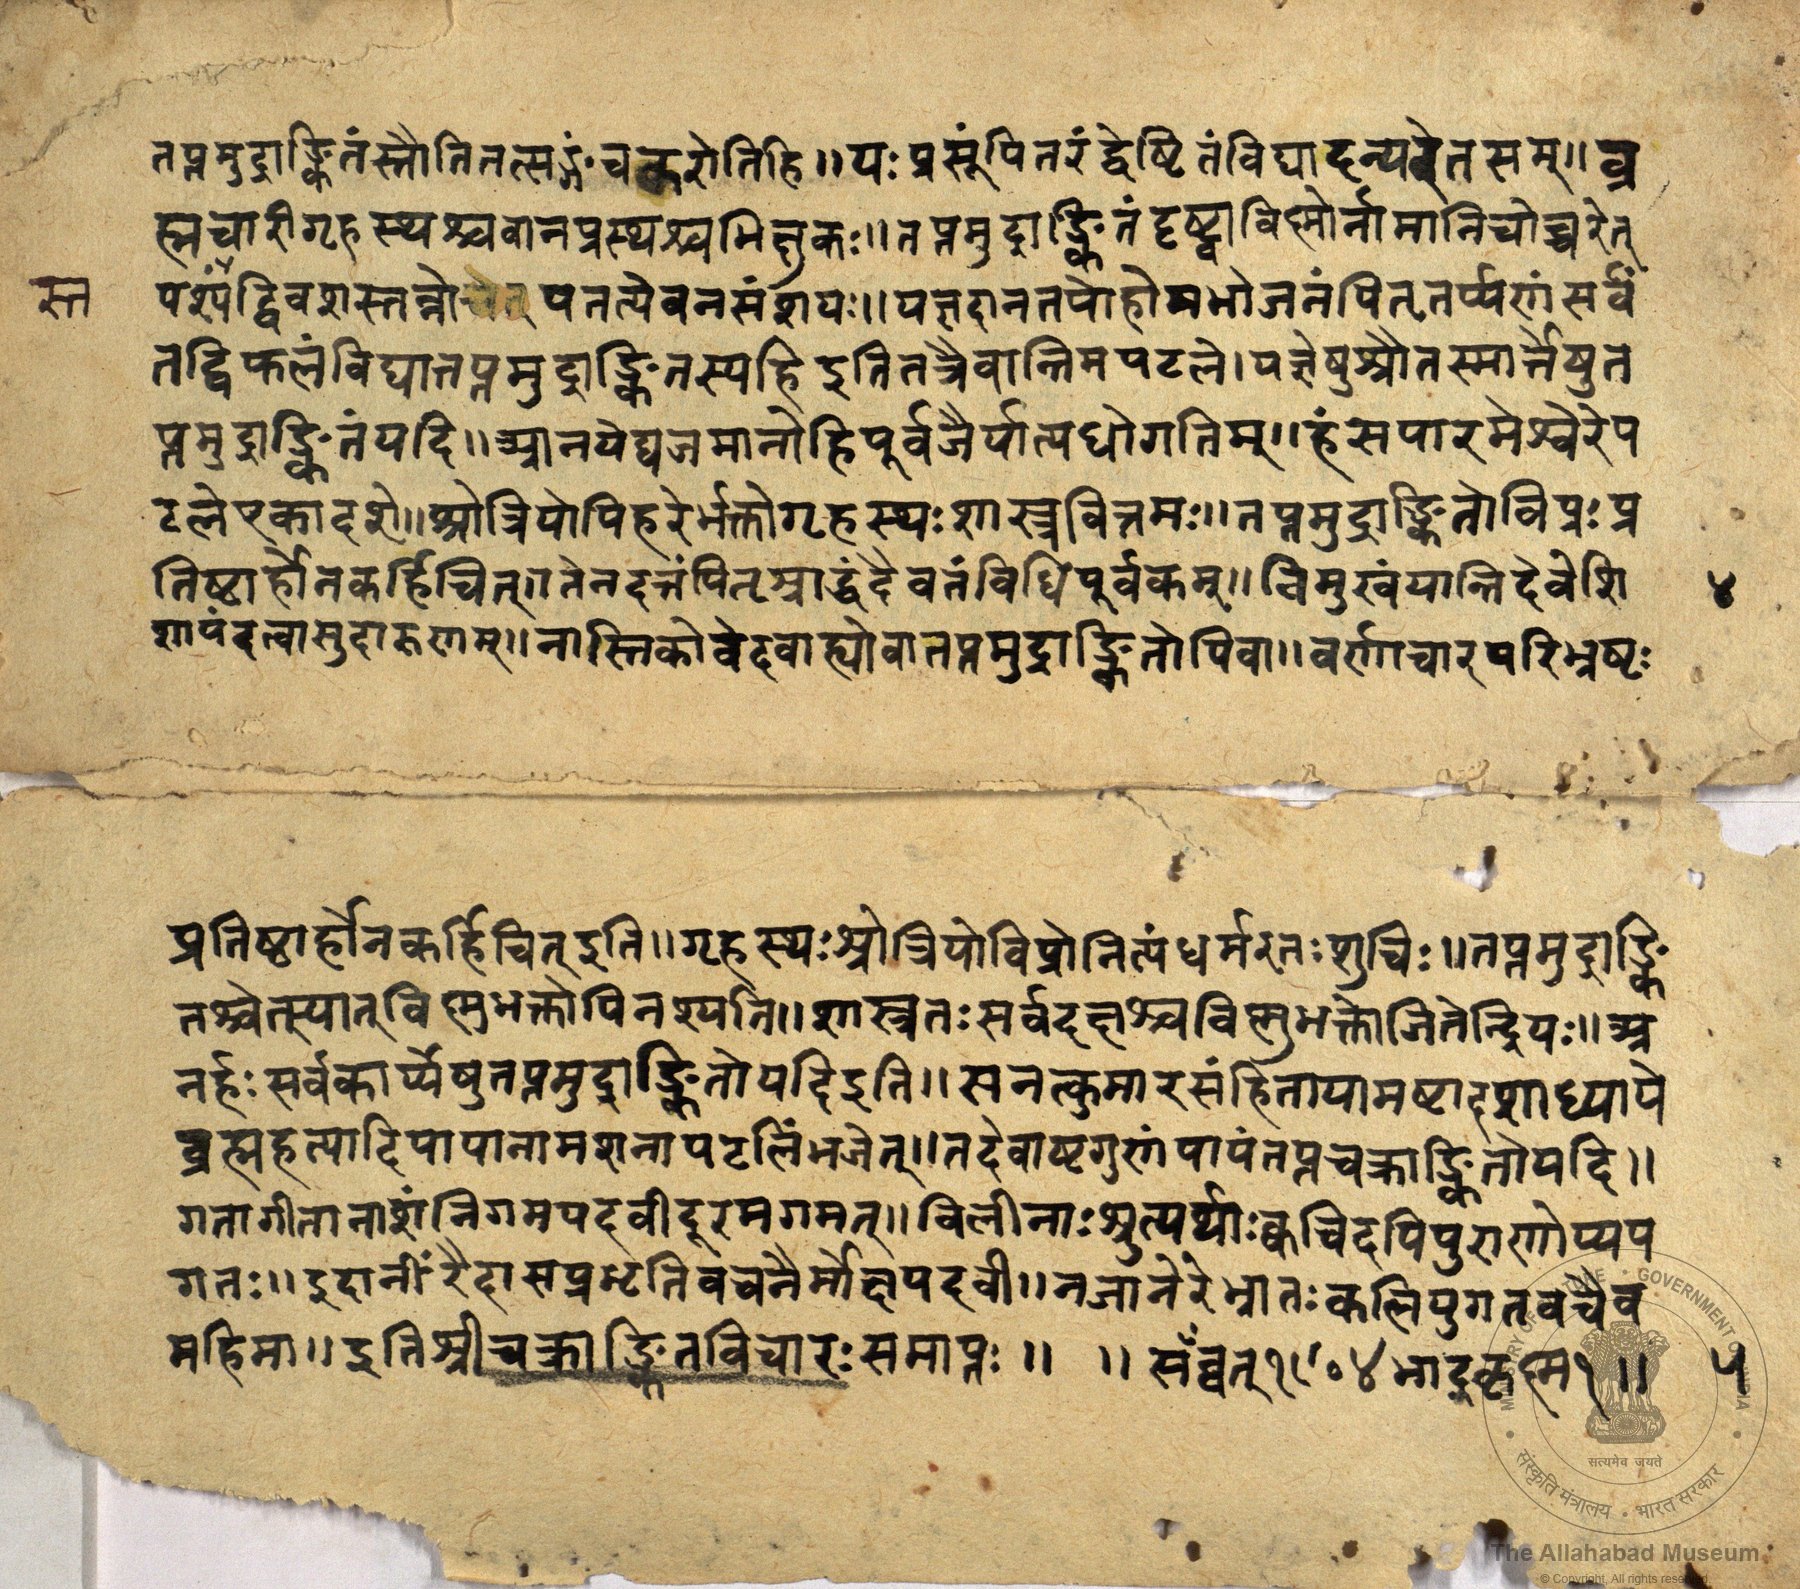 तप्तमुद्राङ्कितंस्तौतितत्सङ्गंचकरोतिहि॥यःप्रसूंपितरंद्वेष्टितंविद्यादन्यरेतसम्॥ब्र
ह्मचारीगृहस्थश्चवानप्रस्थश्चभिक्षुकः॥तप्तमुद्राङ्कितंदृष्ट्वाविष्णोर्नामानिचोच्चरेत्
स्त पश्यंद्विवशस्तन्नो पतत्येवनसंशयः॥यज्ञदानतपोहोमभोजनंपितृतर्प्पणंसर्वं
तद्विफलंविद्यात्तप्तमुद्राङ्कितस्यहिइतितत्रैवान्तिमपटले।यज्ञेषुश्रौतस्मार्त्तेषुत
प्तमुद्राङ्कितंयदि॥आनयेद्यजमानोहिपूर्वजैर्यात्यधोगतिम्॥हंसपारमेश्वरेप
टलेएकादशे॥श्रोत्रियोपिहरेर्भक्तोगृहस्थःशास्त्रवित्तमः॥तप्तमुद्राङ्कितोविप्रःप्र
तिष्टार्होनकर्हिचित्॥तेनदत्तंपितृश्राद्धंदैवतंविधिपूर्वकम्॥विमुखंयान्तिदेवेशि
४
शापंदत्वासुदारुणम्॥नास्तिकोवेदवाह्योवातप्तमुद्राङ्कितोपिवा॥वर्णाचारपरिभ्रष्टः
प्रतिष्ठार्होनकर्हिचित्इति॥गृहस्थःश्रोत्रियोविप्रोनित्यंधर्मरतःशुचिः॥तप्तमुद्राङ्कि
तश्चेत्स्यात्विष्णुभक्तोपिनश्यति॥शास्त्रतःसर्वदक्षश्चविष्णुभक्तोजितेन्द्रियः॥अ
नर्हःसर्वकार्य्येषुतप्तमुद्राङ्कितोयदिइति॥सनत्कुमारसंहितायामष्टादशाध्याये
ब्रह्महत्यादिपापानामशनापटलिंभजेत्॥तदेवाष्टगुणंपापंतप्तचक्राङ्कितोयदि॥
गतागीतानाशंनिगमपदवीदूरमगमत्॥विलीनाःश्रुत्यर्थाःक्वचिदपिपुराणोप्यप
गतः॥इदानींरैदासप्रभृतिवचनैर्मोक्षपदवी॥नजानेरेभ्रातःकलियुगतवचैव
महिमा॥इतिश्रीचक्राङ्कितविचारःसमाप्तः॥ ॥संव्वत्१९०४भाद्रकृष्ण१॥
५
MINISTRY OF CULTURE • GOVERNMENT OF INDIA
सत्यमेव जयते
संस्कृति मंत्रालय • भारत सरकार
The Allahabad Museum
© Copyright, All rights reserved